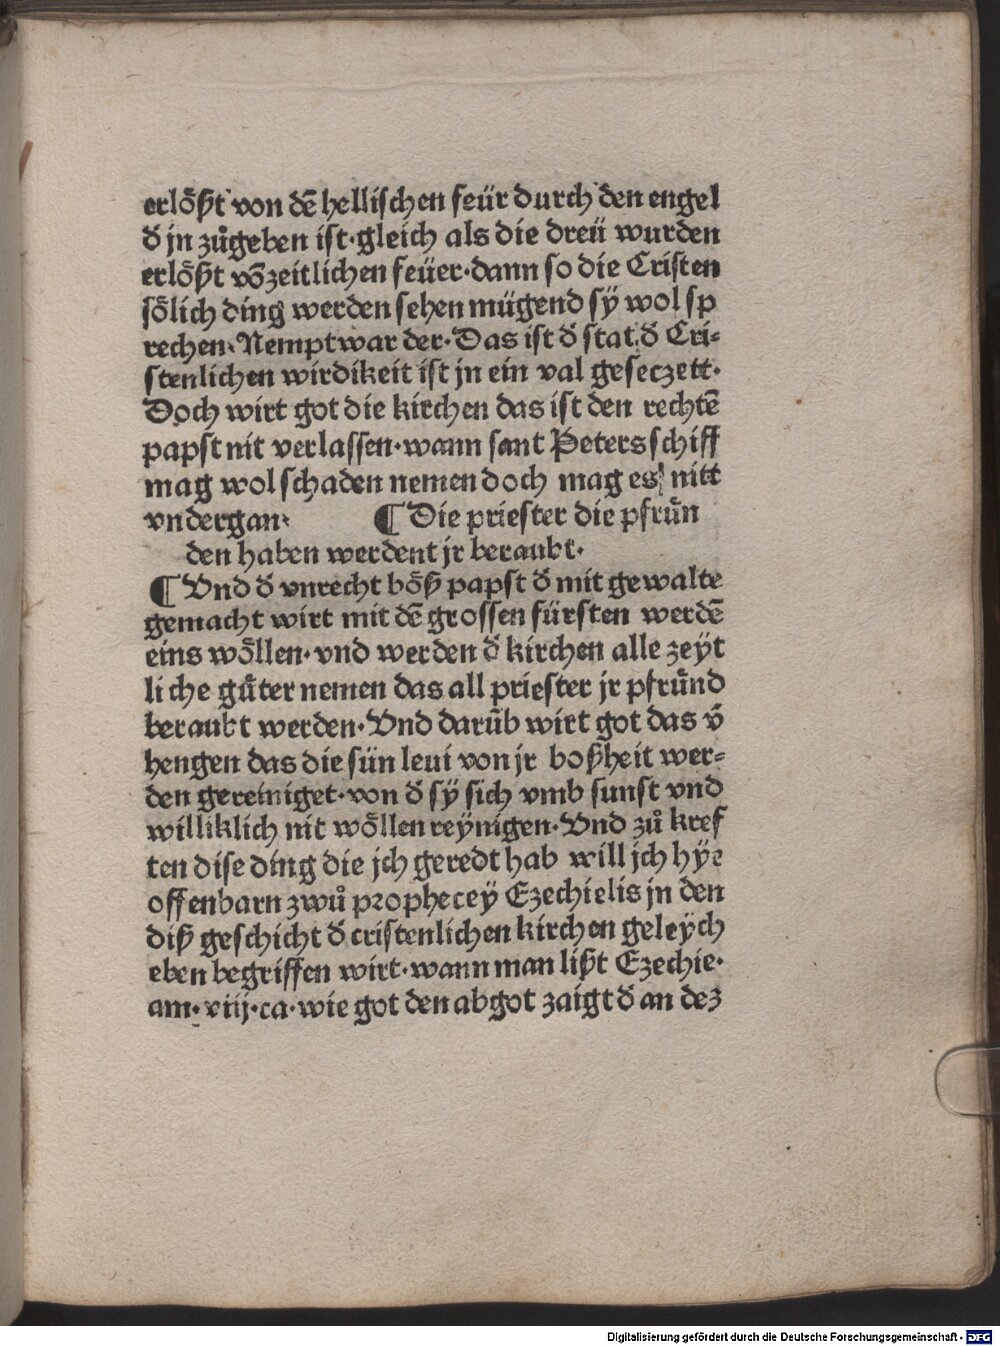 erlößt von dē hellischen feür durch den engel
d̕ jn zůgeben ist·gleich als die dreü wurden
erlößt vō zeitlichen feüer·dann so die Cristen
sölich ding werden sehen mügend sÿ wol sp
rechen·Nempt war der·Das ist d̕ stat d̕ Cri⸗
stenlichen wirdikeit ist jn ein val geseczett·
Doch wirt got die kirchen das ist den rechtē
papst nit verlassen·wann sant Peters schiff
mag wol schaden nemen doch mag es nitt
vndergan· ¶ Die priester die pfrůn
den haben werdent jr beraubt·
¶ Vnd d̕ vnrecht böß papst d̕ mit gewalte
gemacht wirt mit dē grossen fürsten werdē
eins wöllen·vnd werden d̕ kirchen alle zeÿt
liche gůter nemen das all priester jr pfrůnd
beraubt werden·Vnd darūb wirt got das v̕
hengen das die sün leui von jr boßheit wer⸗
den gereiniget·von d̕ sÿ sich vmb sunst vnd
williklich nit wöllen reÿnigen·Vnd zů kref
ten dise ding die jch geredt hab will jch hÿe
offenbarn zwů propheceÿ Ezechielis jn den
diß geschicht d̕ cristenlichen kirchen geleÿch
eben begriffen wirt·wann man lißt Ezechie·
am·viij·ca·wie got den abgot zaigt d̕ an dez
Digitalisierung gefördert durch die Deutsche Forschungsgemeinschaft · DFG